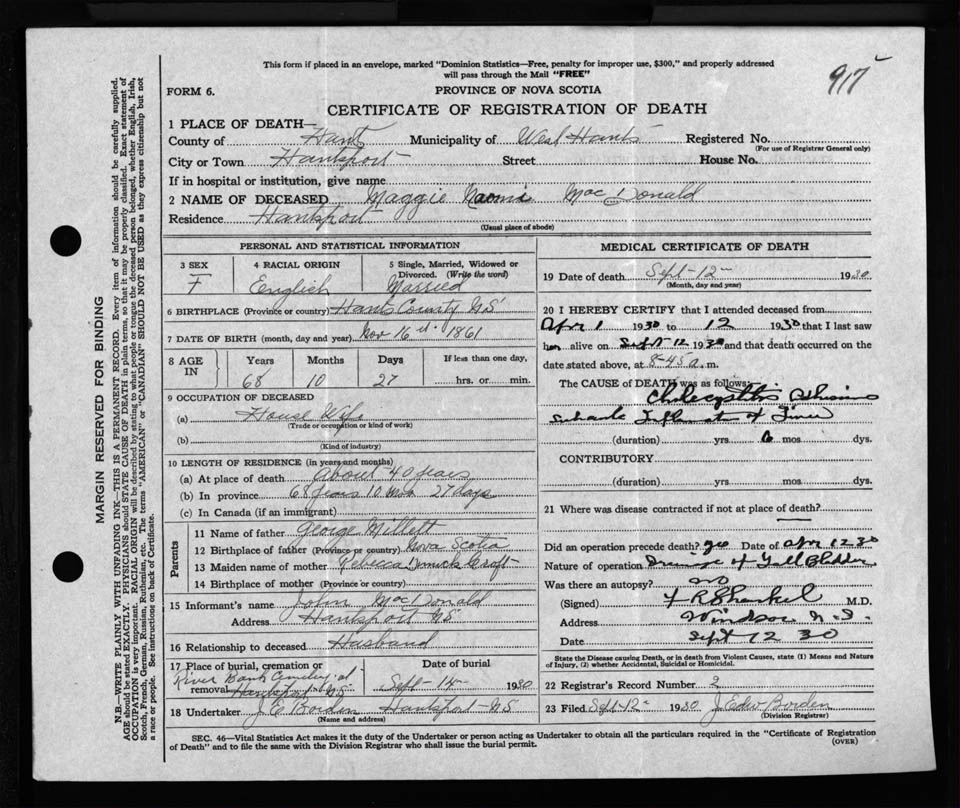 This form if placed in an envelope, marked "Dominion Statistics—Free, penalty for improper use, $300," and properly addressed
will pass through the Mail "FREE"
917
FORM 6.
PROVINCE OF NOVA SCOTIA
CERTIFICATE OF REGISTRATION OF DEATH
1 PLACE OF DEATH—
County of Hants Municipality of West Hants Registered No.
(For use of Registrar General only)
City or Town Hantsport Street House No.
If in hospital or institution, give name
2 NAME OF DECEASED Maggie Naomi MacDonald
Residence Hantsport
(Usual place of abode)
PERSONAL AND STATISTICAL INFORMATION
3 SEX
F
4 RACIAL ORIGIN
English
5 Single, Married, Widowed or
Divorced. (Write the word)
Married
6 BIRTHPLACE (Province or country) Hants County N.S
7 DATE OF BIRTH (month, day and year) Nov 16th 1861
8 AGE IN
Years Months Days If less than one day,
68 10 27 hrs. or min.
9 OCCUPATION OF DECEASED
(a) House Wife
(Trade or occupation or kind of work)
(b)
(Kind of industry)
10 LENGTH OF RESIDENCE (in years and months)
(a) At place of death about 40 years
(b) In province 68 years 10 mos 27 days
(c) In Canada (if an immigrant)
Parents
11 Name of father George Millett
12 Birthplace of father (Province or country) Nova Scotia
13 Maiden name of mother Rebecca
14 Birthplace of mother (Province or country)
15 Informant's name John MacDonald
Address Hantsport NS
16 Relationship to deceased Husband
17 Place of burial, cremation or Date of burial
River Bank Cemetery at
removal Hantsport NS Sept-14 1930
18 Undertaker J E Borden Hantsport-NS
(Name and address)
MEDICAL CERTIFICATE OF DEATH
19 Date of death Sept-12 1930
(Month, day and year)
20 I HEREBY CERTIFY that I attended deceased from
Apr 1 1930 to 12 1930 that I last saw
her alive on Sept 12 1930 and that death occurred on
date stated above, at 8-45 a.m.
The CAUSE of DEATH was as follows:
Cholecystitis
of
(duration) yrs. 6 mos. dys.
CONTRIBUTORY
(duration) yrs. mos. dys.
21 Where was disease contracted if not at place of death?
—
Did an operation precede death? yes Date of Apr 12 30
Nature of operation Drainage of Gall Bladder
Was there an autopsy? no
(Signed) M.D.
Address Windsor N.S.
Date Sept 12 30
State the Disease causing Death, or in death from Violent Causes, state (1) Means and Nature
of Injury, (2) whether Accidental, Suicidal or Homicidal.
22 Registrar's Record Number 2
23 Filed Sept-12 1930 J. Edw Borden
(Division Registrar)
SEC. 46—Vital Statistics Act makes it the duty of the Undertaker or person acting as Undertaker to obtain all the particulars required in the "Certificate of Registration
of Death" and to file the same with the Division Registrar who shall issue the burial permit.
(OVER)
MARGIN RESERVED FOR BINDING
N.B.—WRITE PLAINLY WITH UNFADING INK—THIS IS A PERMANENT RECORD. Every item of information should be carefully supplied.
AGE should be stated EXACTLY. PHYSICIANS should STATE CAUSE OF DEATH in plain terms, so that it may be properly classified. Exact statement of
OCCUPATION is very important. RACIAL ORIGIN will be described by stating to what people or tongue the deceased person belonged, whether English, Irish,
Scotch, French, German, Russian, Ruthenian, etc. The terms "AMERICAN" or "CANADIAN" SHOULD NOT BE USED as they express citizenship but not
a race or people. See instructions on back of Certificate.